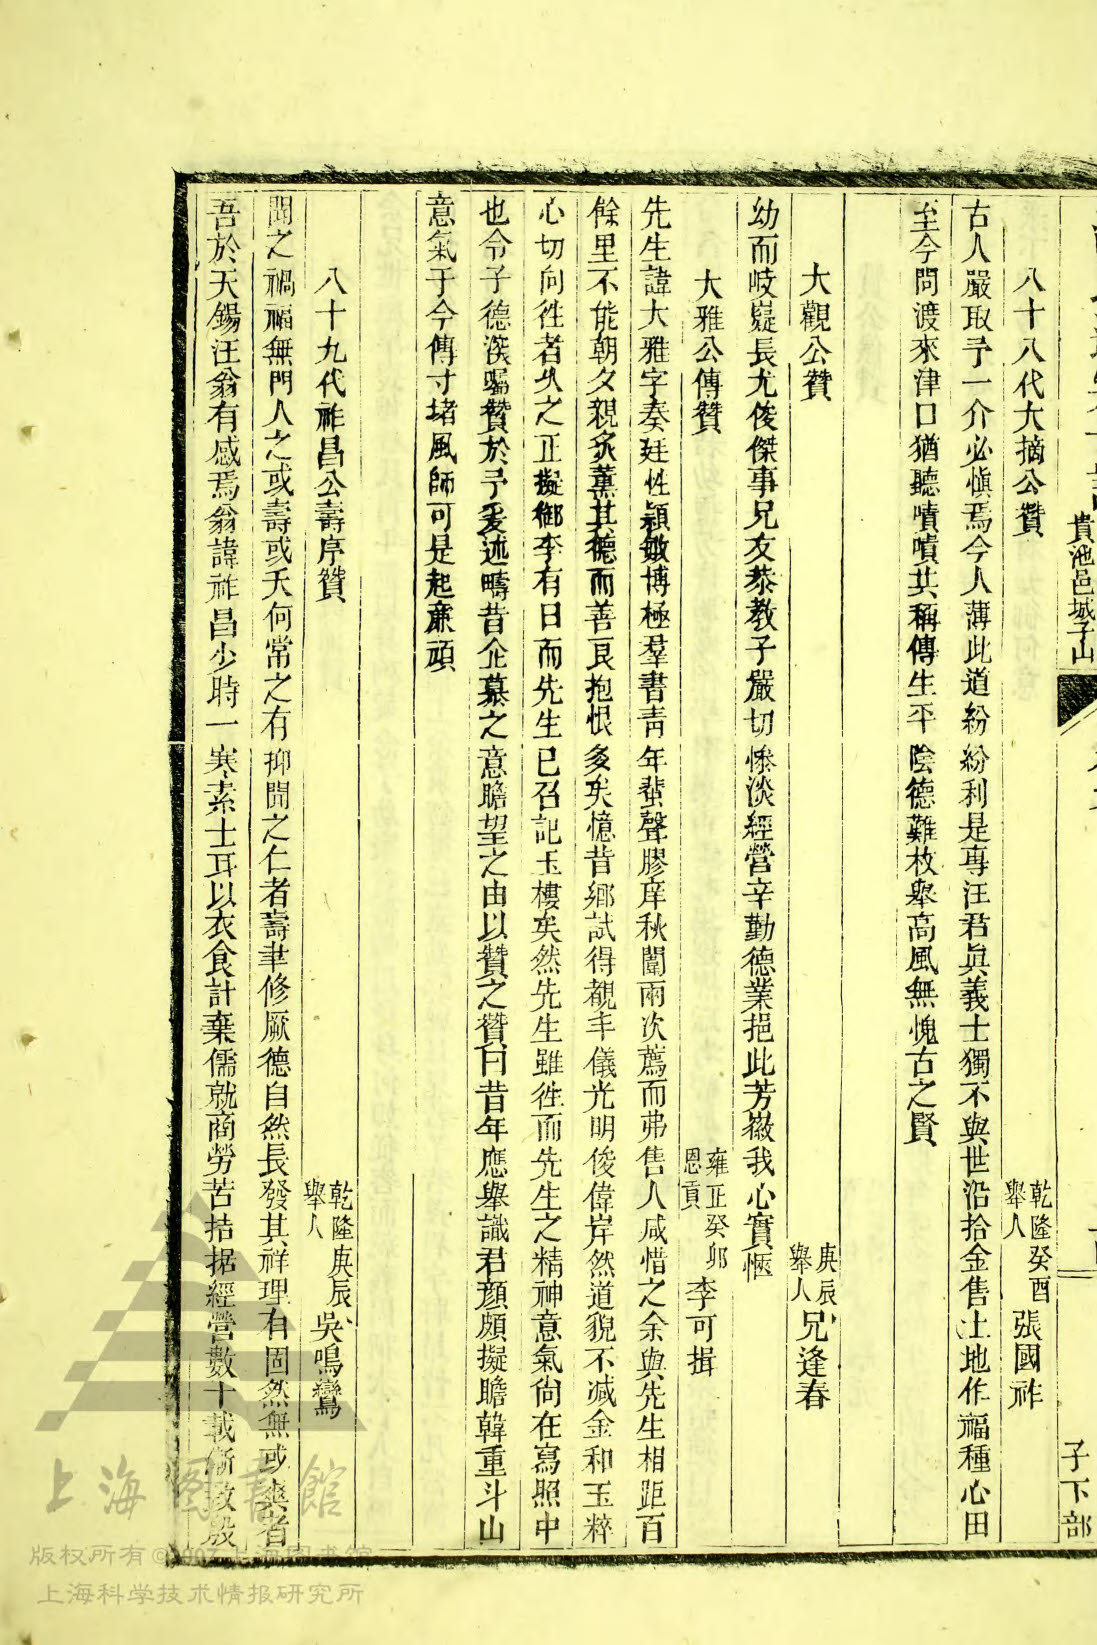 貴池邑城子山
子下部
八十八代大摛公贊 乾隆癸酉舉人 張國祚
古人嚴取予一介必愼焉今人薄此道紛紛利是專汪君眞義士獨不與世沿拾金售土地作福種心田
至今問渡來津口猶聽嘖嘖共稱傳生平陰德難枚舉高風無愧古之賢
大觀公贊 庚辰舉人 兄逢春
幼而岐嶷長尤俊傑事兄友恭教子嚴切慘淡經營辛勤德業挹此芳徽我心實愜
大雅公傳贊 雍正癸卯恩貢 李可揖
先生諱大雅字奏廷性穎敏博極羣書靑年蜚聲膠庠秋闈兩次薦而弗售人咸惜之余與先生相距百
餘里不能朝夕親炙薰其德而善良抱恨多矣憶昔鄉試得覩丰儀光明俊偉岸然道貌不减金和玉粹
心切向徃者久之正擬御李有日而先生已召記玉樓矣然先生雖徃而先生之精神意氣尙在寫照中
也令子德渼囑贊於予爰述疇昔企慕之意瞻望之由以贊之贊曰昔年應舉識君顔頗擬瞻韓重斗山
意氣于今傳寸堵風師可是起亷頑
八十九代祚昌公壽序贊 乾隆庚辰舉人 吳鳴鸞
聞之禍福無門人之或壽或夭何常之有抑聞之仁者壽聿修厥德自然長發其祥理有固然無或爽者
吾於天錫汪翁有感焉翁諱祚昌少時一寒素士耳以衣食計棄儒就商勞苦拮据經營數十載漸致殷
上海圖書館
版权所有©2007上海图书馆
上海科学技术情报研究所